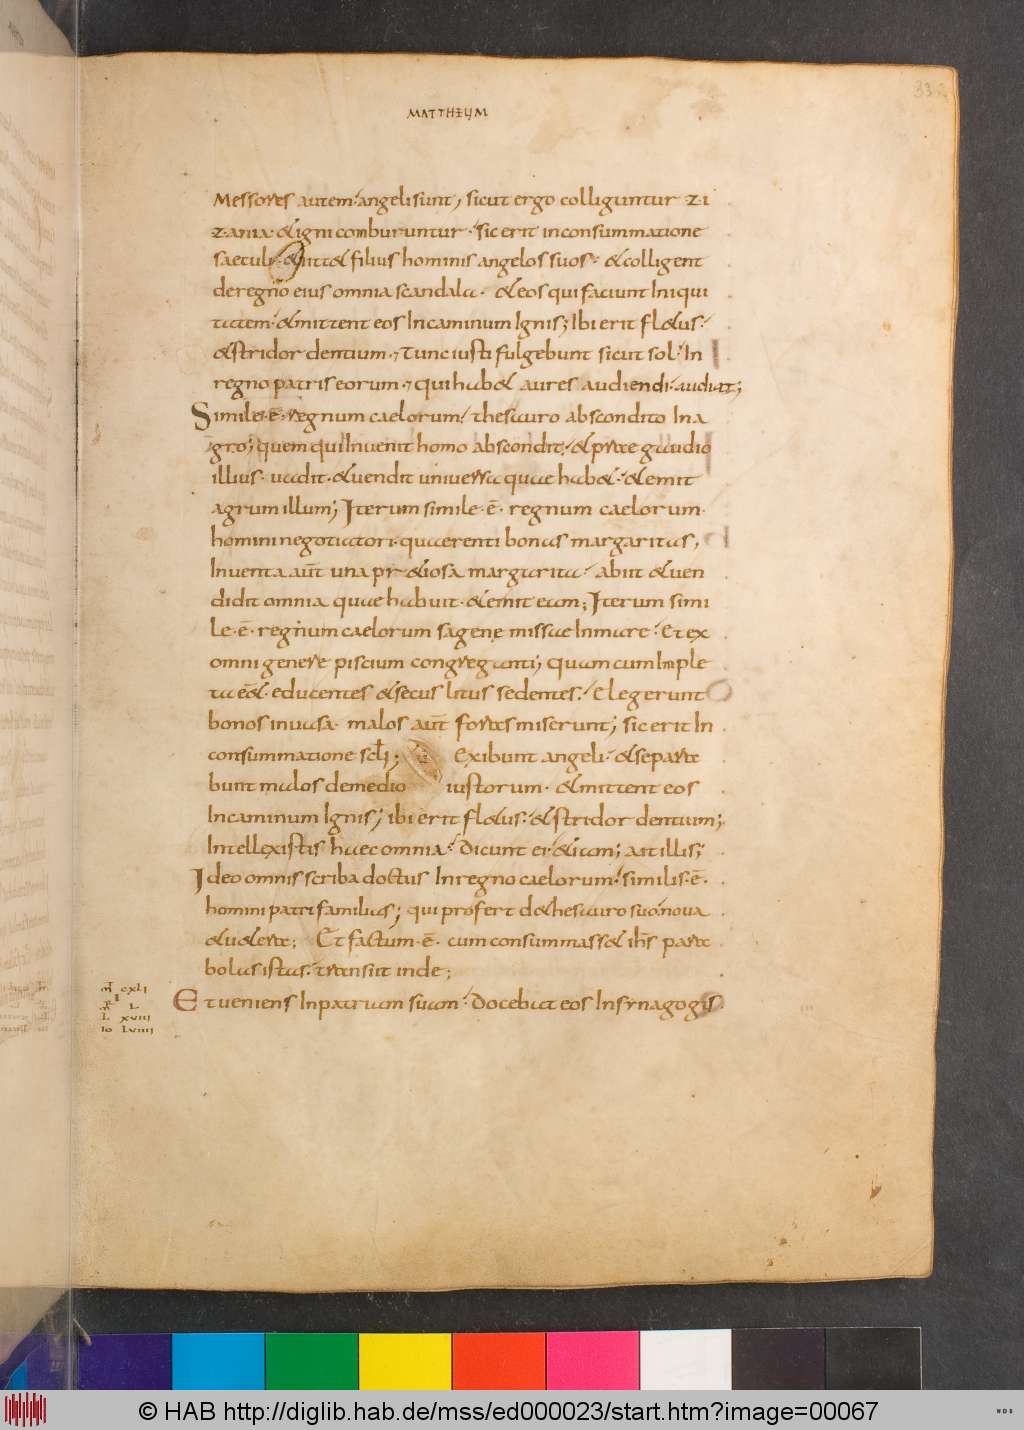 33
MATTHEUM
Messores autem angeli sunt, sicut ergo colliguntur zi
zania & igni comburuntur. sic erit inconsummatione
saeculi. mitt& filius hominis angelos suos. & colligent
deregno eius omnia scandala. & eos qui faciunt Iniqui
tatem. & mittent eos Incaminum Ignis; Ibi erit fl&us.
& stridor dentium. Tunc iusti fulgebunt sicut sol. In
regno patris eorum. qui hab& aures audiendi. audiat;
Simile. ē. regnum caelorum. thesauro abscondito In a
gro; quem qui Inuenit homo abscondit. & prae gaudio
illius. uadit. & uendit uniuersa quae hab&. & emit
agrum illum; Iterum simile. ē. regnum caelorum.
homini negotiatori. quaerenti bonas margaritas,
Inuenta aūt una pr&iosa margarita. abiit & uen
didit omnia quae habuit. & emit eam; Iterum simi
le. ē. regnum caelorum sagene missae Inmare. Et ex
omni genere piscium congreganti; quam cum Imple
ta ēē&. educentes & secus litus sedentes. Elegerunt
bonos inuasa. malos aūt foras miserunt; sic erit In
consummatione scłi; Exibunt angeli. & separa
bunt malos demedio iustorum. & mittent eos
Incaminum Ignis; ibi erit fl&us. & stridor dentium;
Intellexistis haec omnia. Dicunt ei. &iam; ait illis;
Ideo omnis scriba doctus In regno caelorum. similis. ē.
homini patri familias; qui profert de thesauro suo noua
& u&era; Et factum. ē. cum consummass& ihs para
bolas istas. transiit inde;
Et ueniens Inpatriam suam. Docebat eos Insynagogis
m̄ cxli
I
m̄ L
L xviii
Io Lviiii
© HAB http://diglib.hab.de/mss/ed000023/start.htm?image=00067